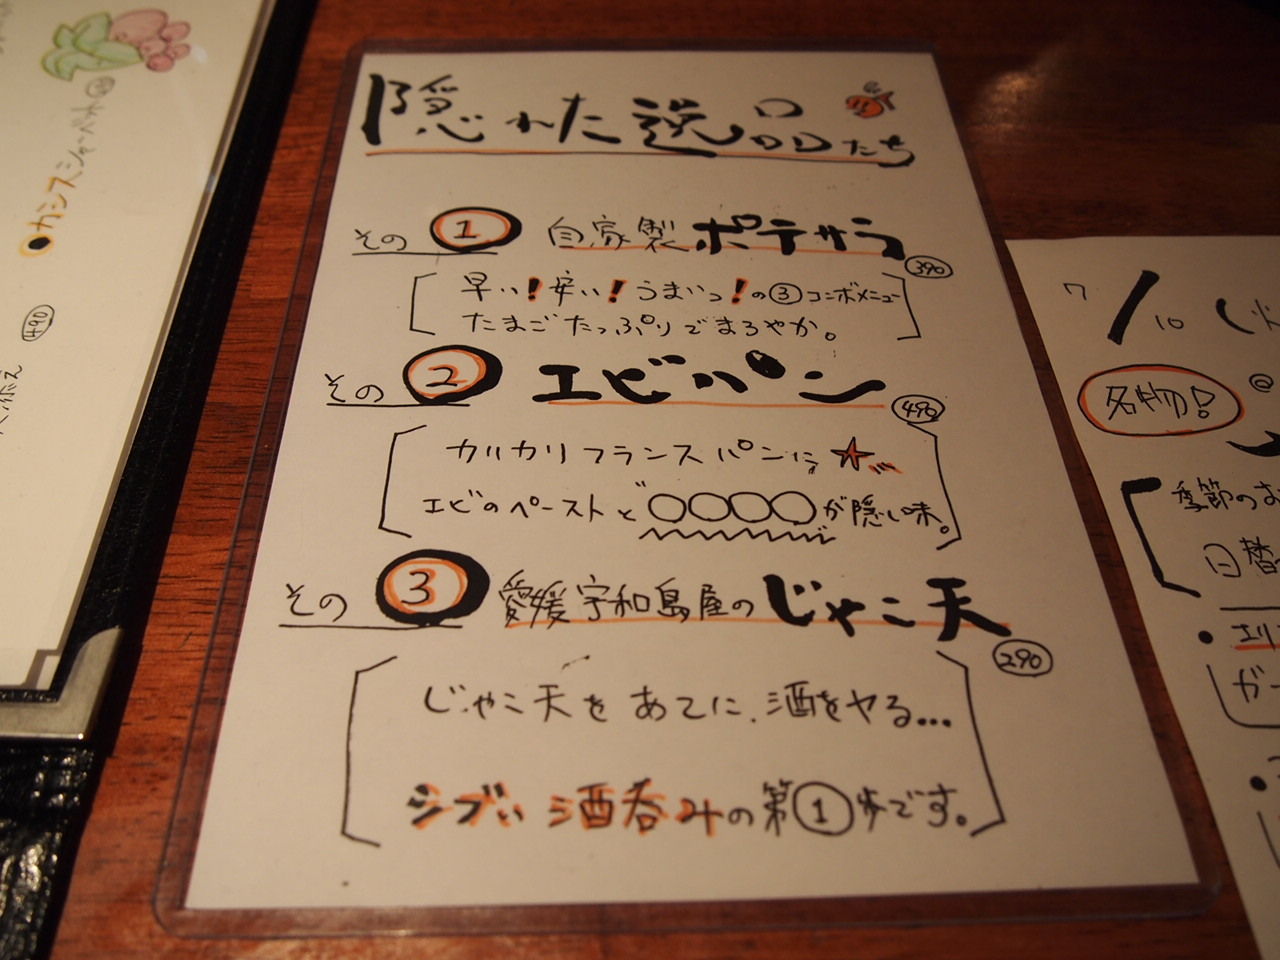 隠れた逸品たち
その① 自家製ポテサラ
390
早い!安い!うまいっ!の③コンボメニュー
たまごたっぷりでまろやか。
その② エビパン
490
カリカリフランスパンに★
エビのペーストと○○○○が隠し味。
その③ 愛媛宇和島屋のじゃこ天
290
じゃこ天をあてに、酒をヤる…
シブい酒呑みの第①歩です。
●カシスシャーベット
490
7/10(火
名物!
@
季節のお
日替